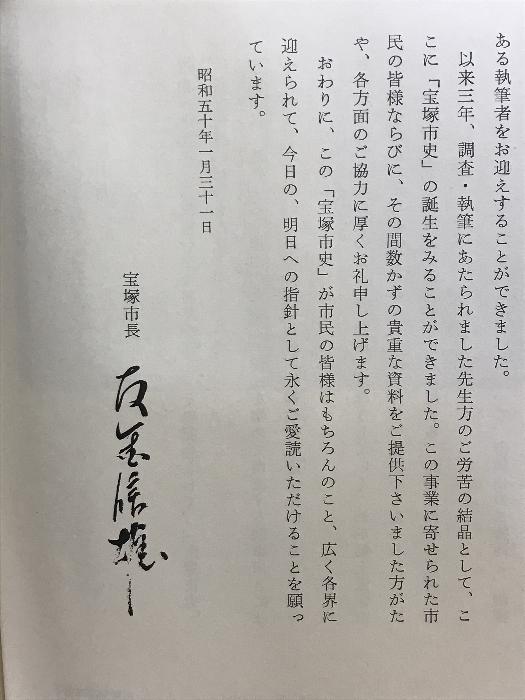 ある執筆者をお迎えすることができました。
以来三年、調査・執筆にあたられました先生方のご労苦の結晶として、こ
こに「宝塚市史」の誕生をみることができました。この事業に寄せられた市
民の皆様ならびに、その間数かずの貴重な資料をご提供下さいました方がた
や、各方面のご協力に厚くお礼申し上げます。
おわりに、この「宝塚市史」が市民の皆様はもちろんのこと、広く各界に
迎えられて、今日の、明日への指針として永くご愛読いただけることを願っ
ています。
昭和五十年一月三十一日
宝塚市長 友金信雄